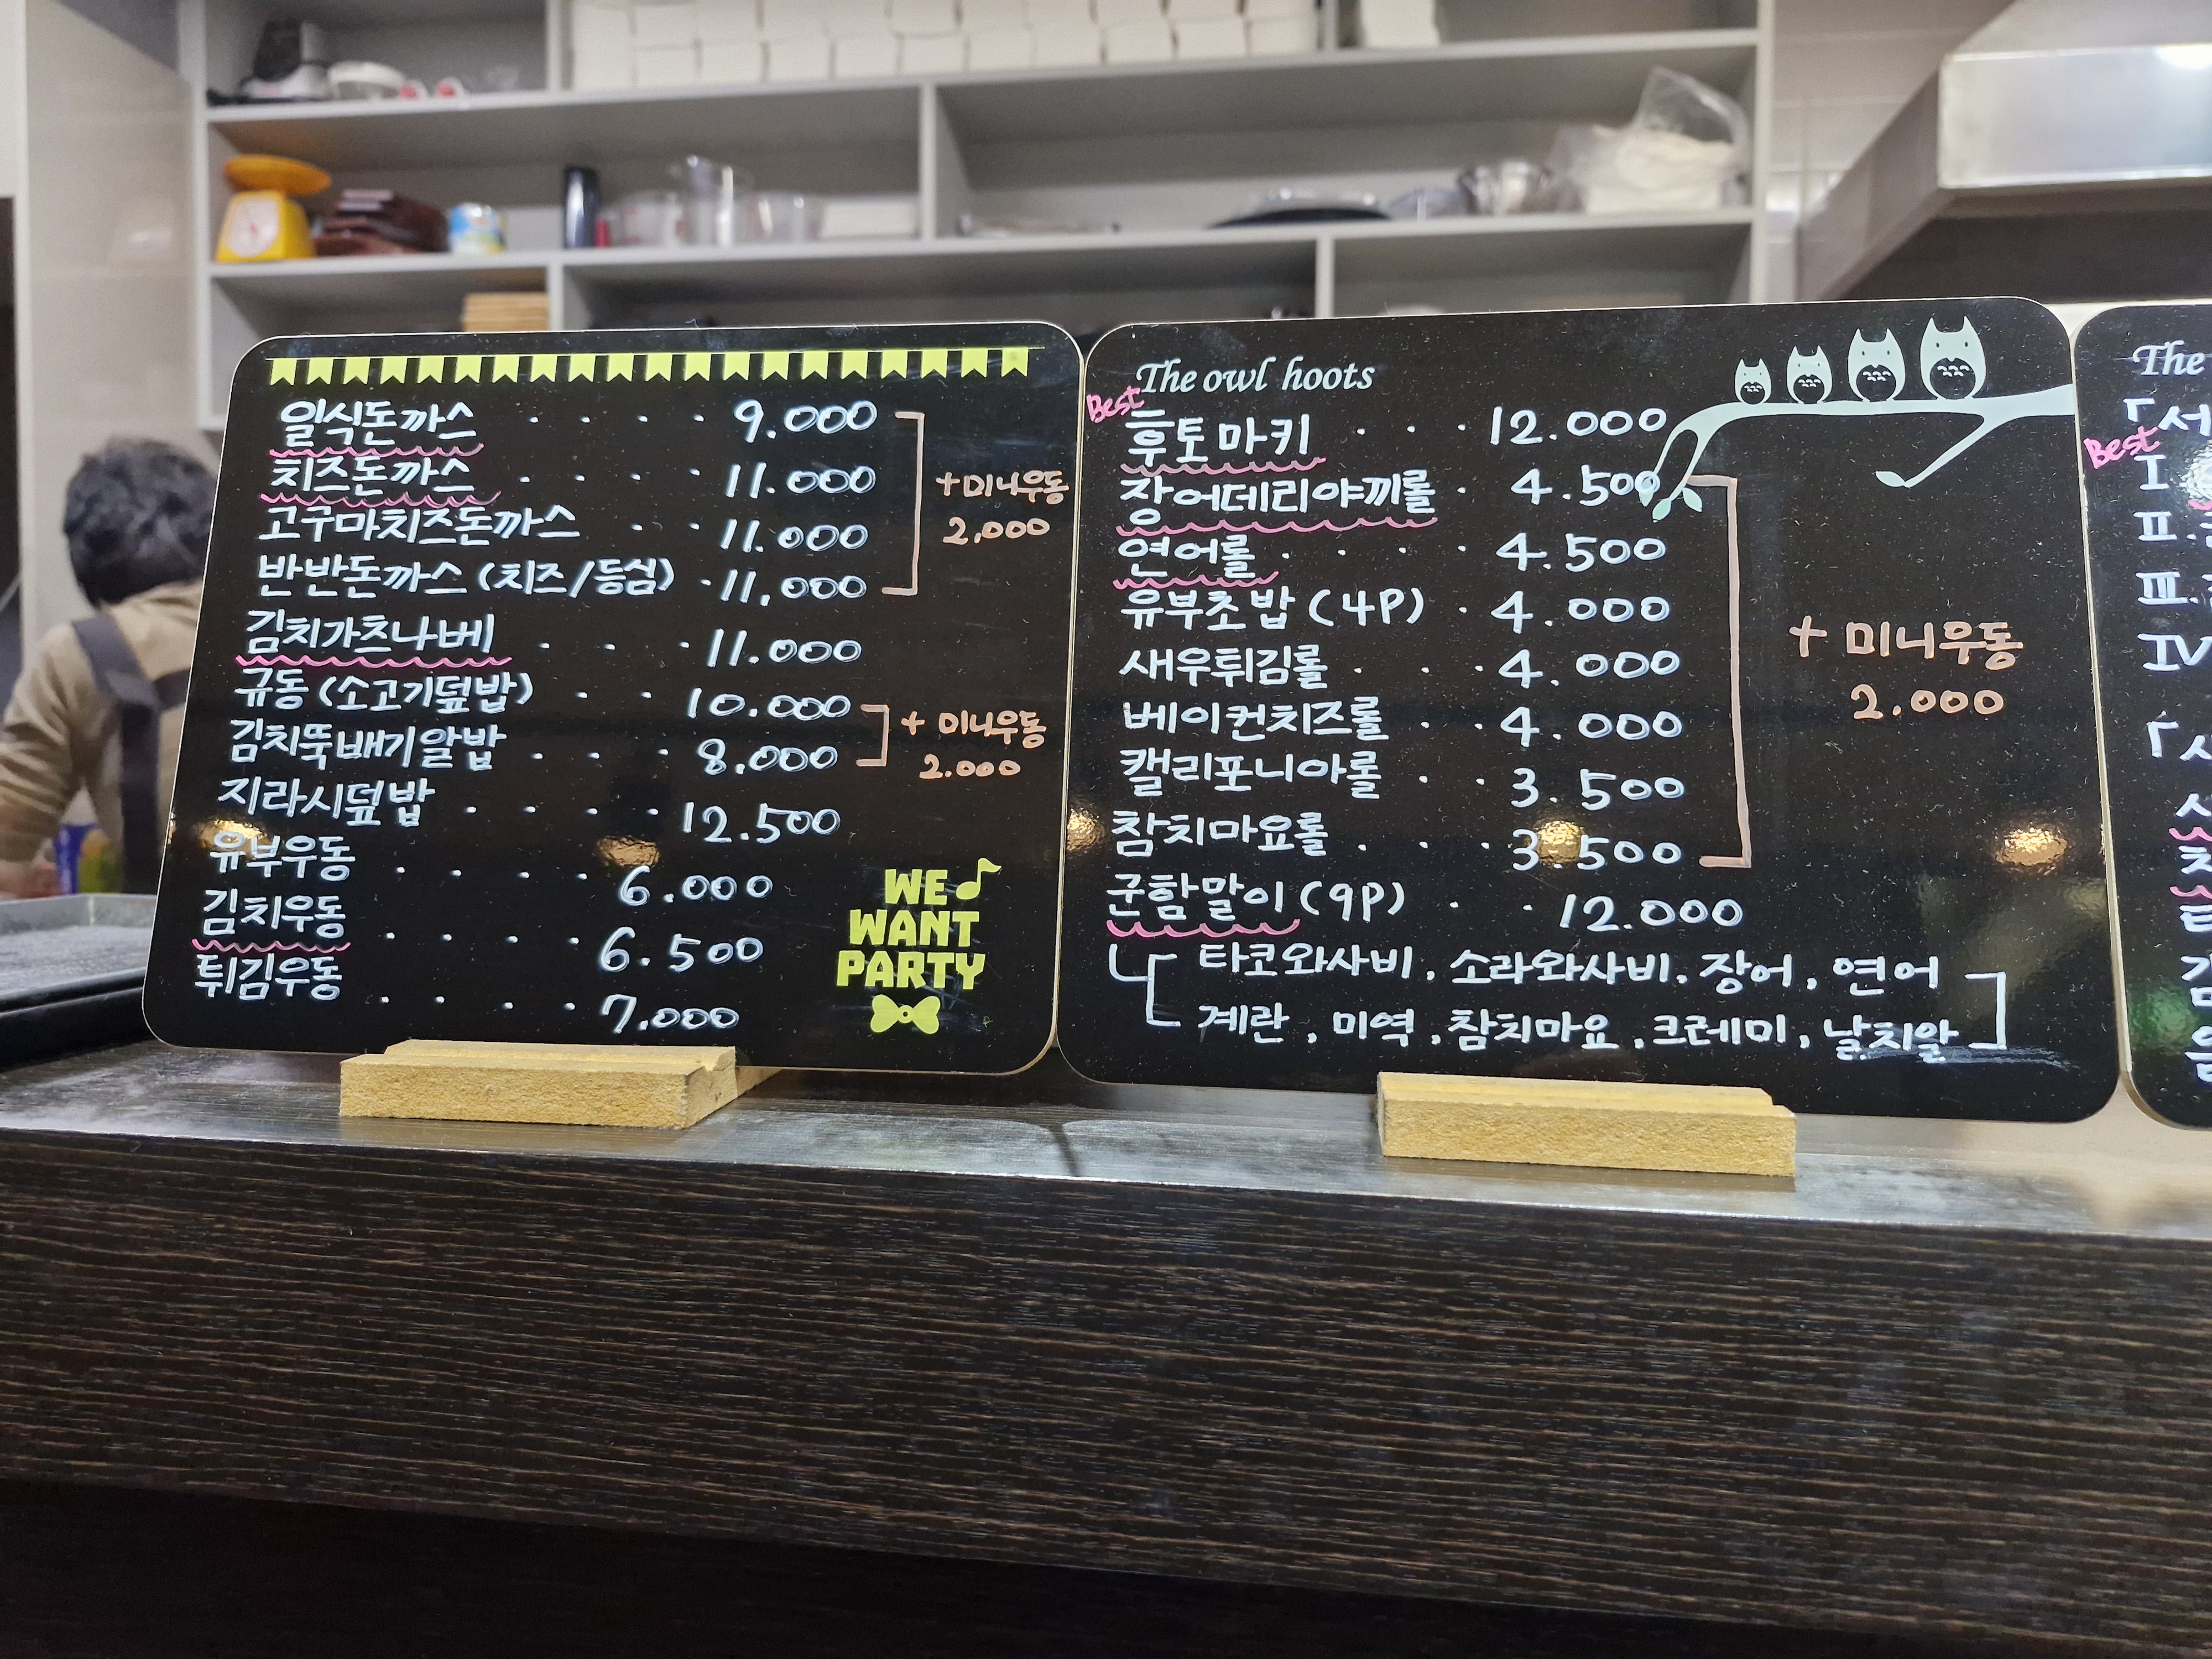 일식돈까스 . . . . 9.000
치즈돈까스 . . . . 11.000
고구마치즈돈까스 . . 11.000
반반돈까스 (치즈/등심) . 11.000
+미니우동
2,000
김치가츠나베 . . . 11.000
규동 (소고기덮밥) . . 10.000
김치뚝배기알밥 . . . 8.000
+ 미니우동
2.000
지라시덮밥 . . . . 12.500
유부우동 . . . . 6.000
김치우동 . . . . 6.500
튀김우동 . . . . 7.000
WE
WANT
PARTY
The owl hoots
Best
후토마키 . . . 12.000
장어데리야끼롤 . 4.500
연어롤 . . . . 4.500
유부초밥 (4P) . 4.000
새우튀김롤 . . . 4.000
베이컨치즈롤 . . 4.000
캘리포니아롤 . . 3.500
참치마요롤 . . . 3.500
+ 미니우동
2.000
군함말이 (9P) . . 12.000
타코와사비, 소라와사비, 장어, 연어
계란, 미역, 참치마요, 크레미, 날치알
The
「서
Best
I
II.
III.
IV